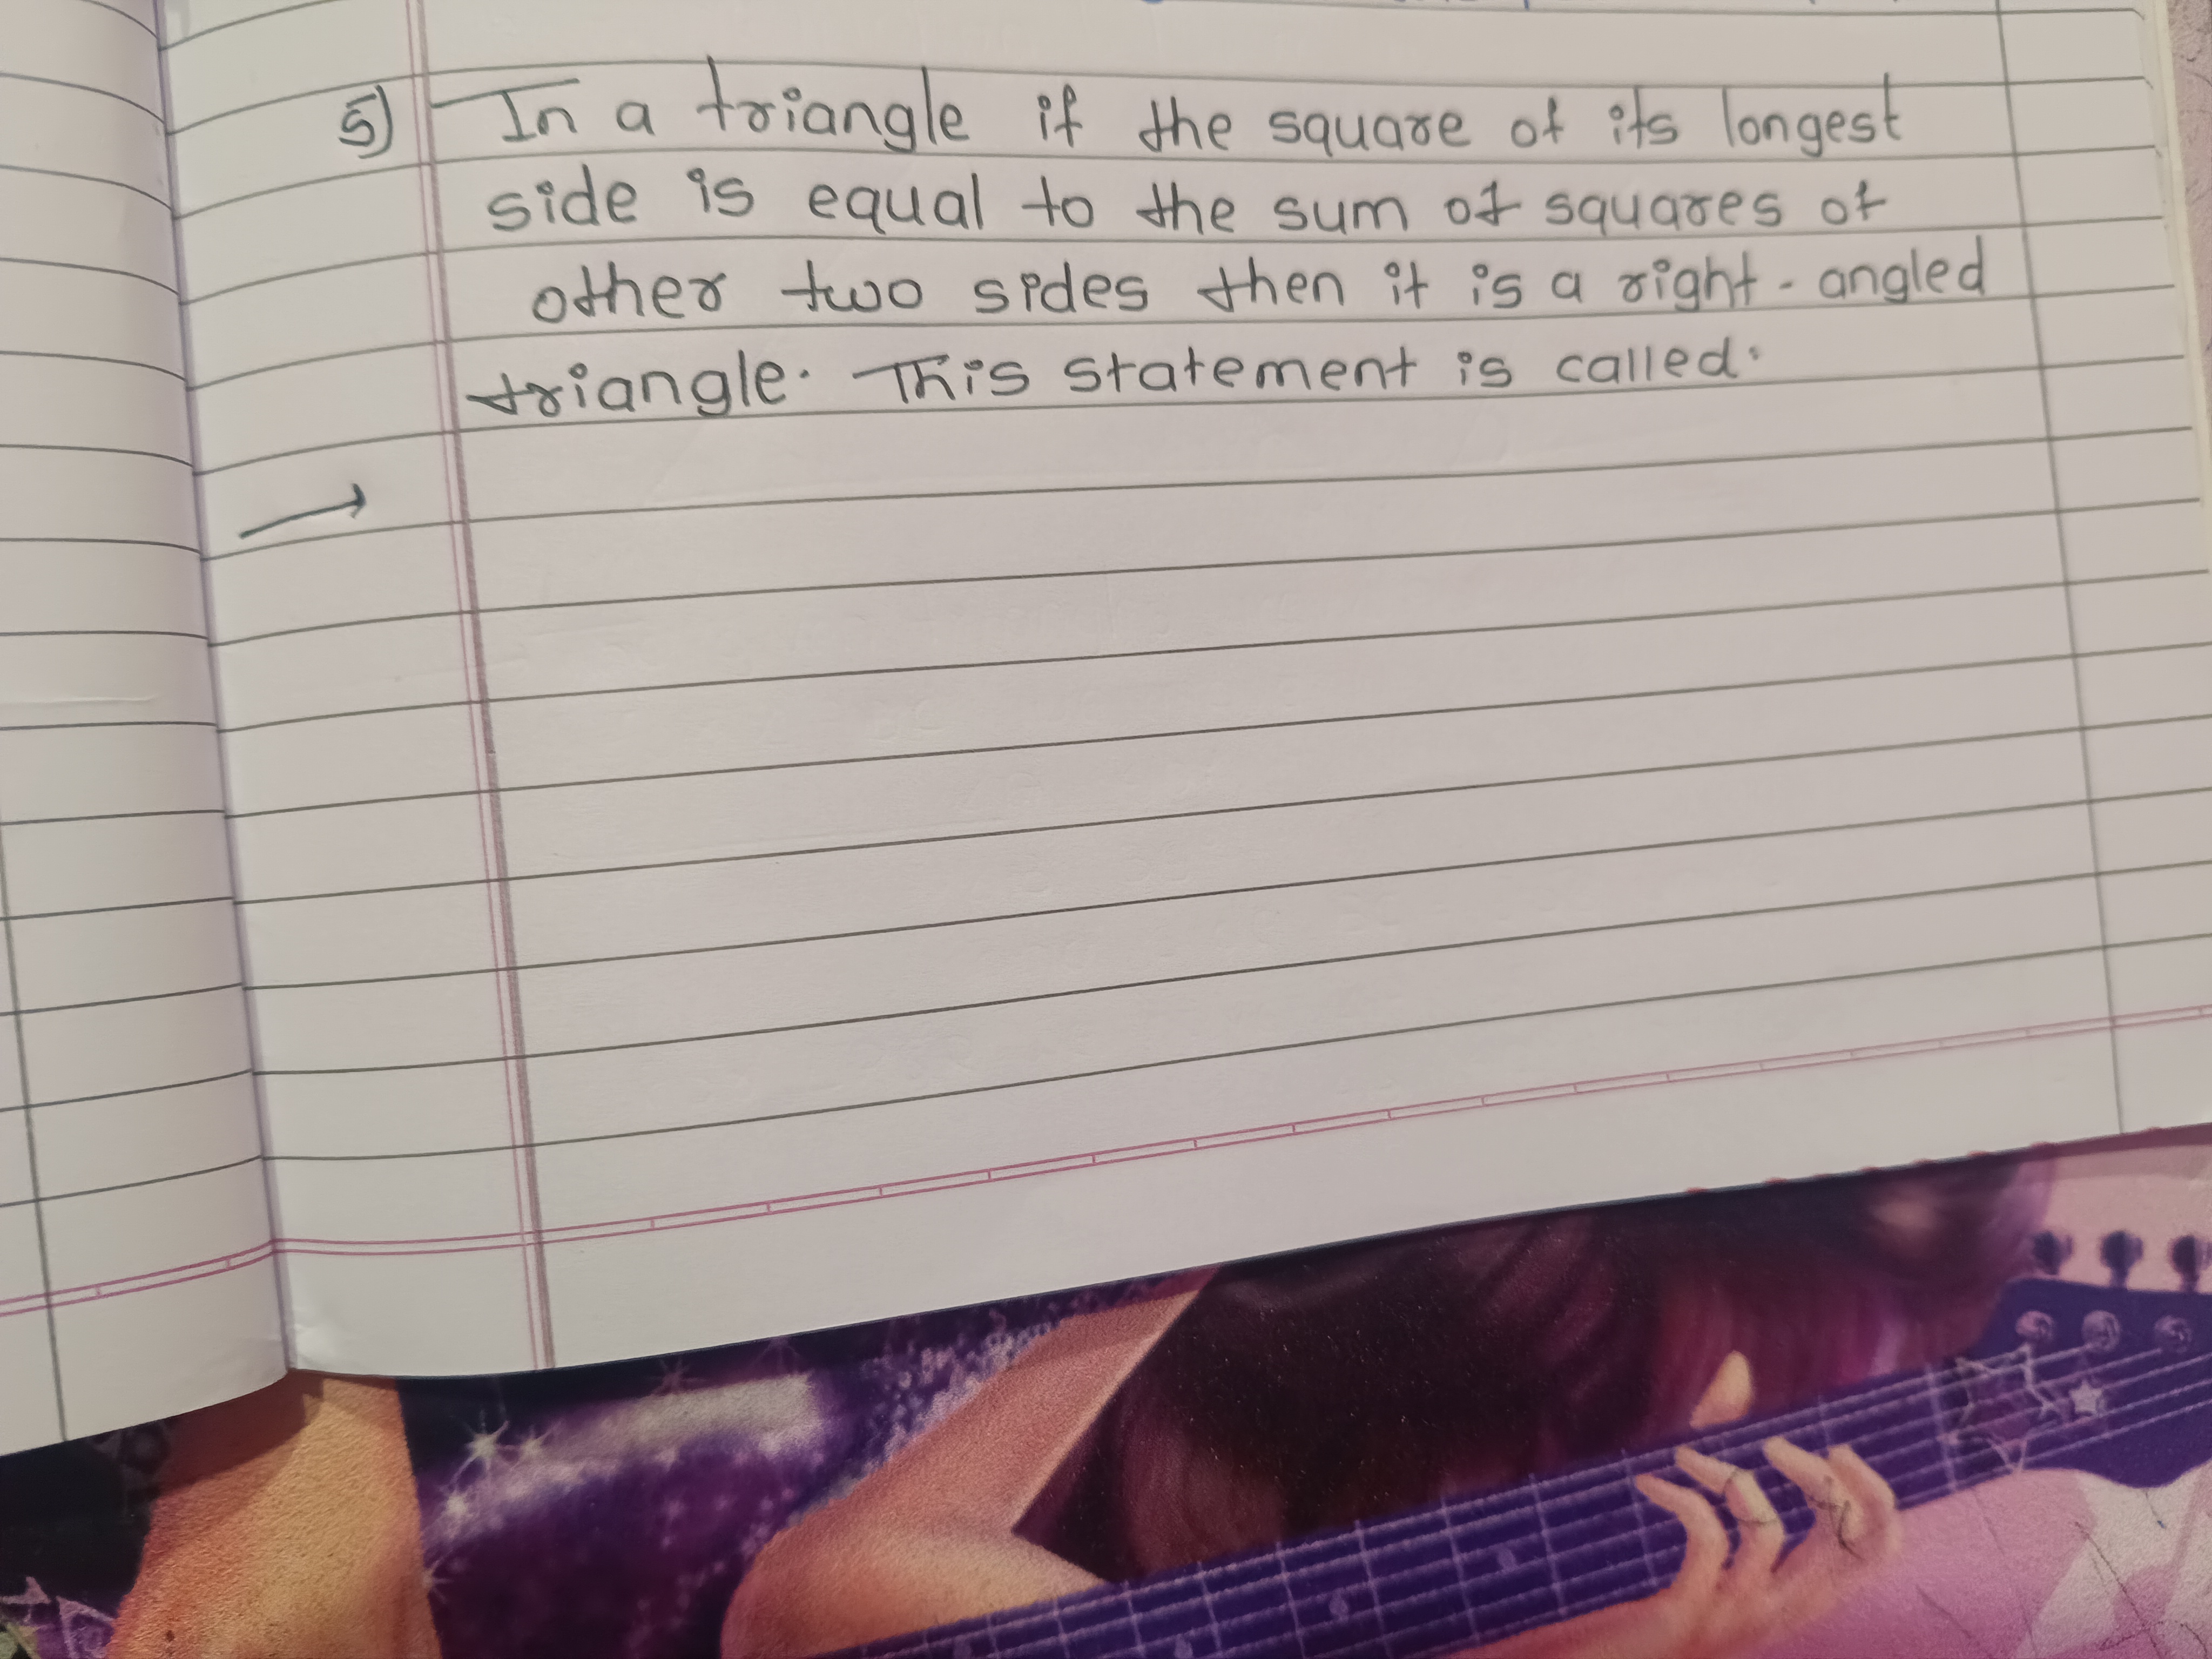 5) In a triangle if the square of its longest
side is equal to the sum of squares of
other two sides then it is a right-angled
triangle. This statement is called.
→